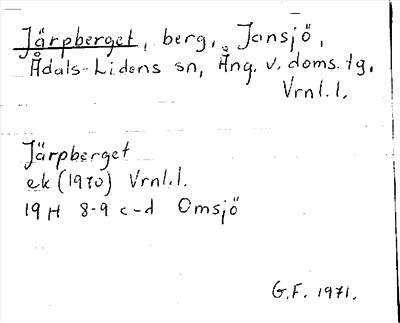 Järpberget, berg, Jansjö,
Ådals-Lidens sn, Ång. v. doms. tg.
Vrnl.l.
Järpberget
ek (1970) Vrnl.l.
19H 8-9 c-d Omsjö
G.F. 1971.